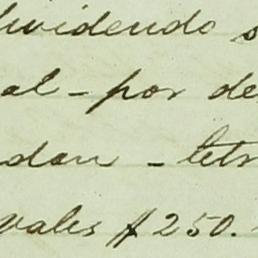 dividendo s
al - por de
dan - letr
vales $250.-